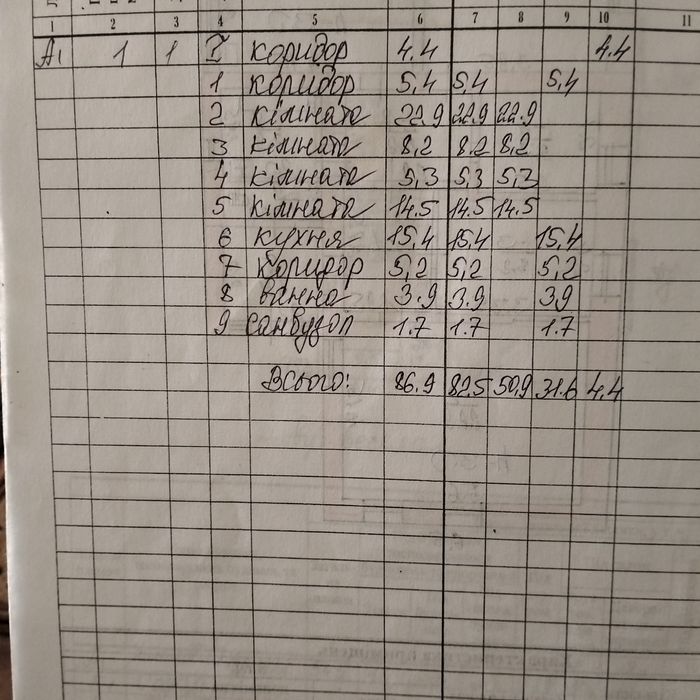 1 2 3 4 5 6 7 8 9 10 11
A1 1 1 I коридор 4.4 4.4
1 коридор 5,4 5,4 5,4
2 кімната 22.9 22.9 22.9
3 кімната 8,2 8.2 8,2
4 кімната 5,3 5,3 5,3
5 кімната 14.5 14.5 14.5
6 кухня 15,4 15,4 15,4
7 коридор 5,2 5,2 5,2
8 ванна 3.9 3.9 3,9
9 санвузол 1.7 1.7 1.7
Всього: 86.9 82.5 50,9 31.6 4.4